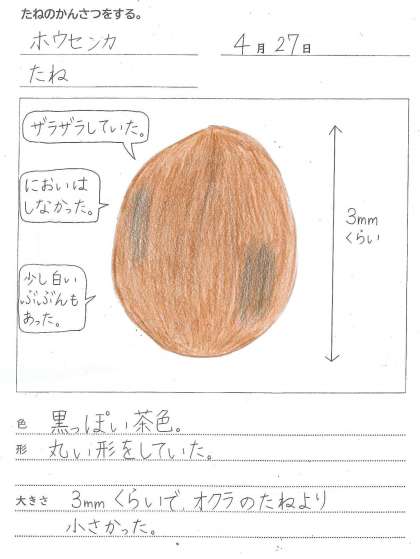 たねのかんさつをする。
ホウセンカ 4月27日
たね
ザラザラしていた。
においは
しなかった。
少し白い
ぶぶんも
あった。
3mm
くらい
色 黒っぽい茶色。
形 丸い形をしていた。
大きさ 3mmくらいで、オクラのたねより
小さかった。